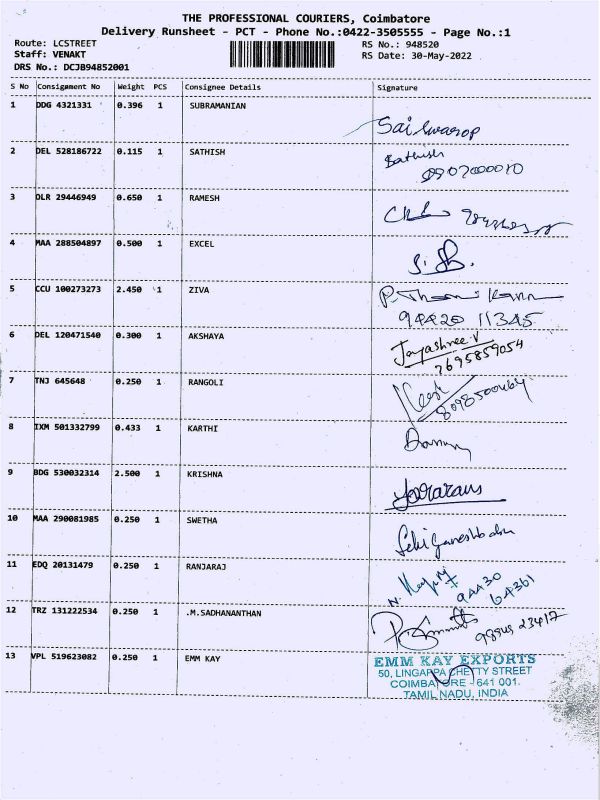 THE PROFESSIONAL COURIERS, Coimbatore
Delivery Runsheet - PCT - Phone No.:0422-3505555 - Page No.:1
Route: LCSTREET
Staff: VENAKT
DRS No.: DCJB94852001
RS No.: 948520
RS Date: 30-May-2022
S No Consignment No Weight PCS Consignee Details Signature
1 DDG 4321331 0.396 1 SUBRAMANIAN
Sai Swaroop
2 DEL 528186722 0.115 1 SATHISH
Sathish
3 DLR 29446949 0.650 1 RAMESH
4 MAA 288504897 0.500 1 EXCEL
5 CCU 100273273 2.450 1 ZIVA
94420 11345
6 DEL 120471540 0.300 1 AKSHAYA
Jayashree.V
7695859054
7 TNJ 645648 0.250 1 RANGOLI
8098500464
8 IXM 501332799 0.433 1 KARTHI
9 BDG 530032314 2.500 1 KRISHNA
10 MAA 290081985 0.250 1 SWETHA
11 EDQ 20131479 0.250 1 RANJARAJ
94430
64361
12 TRZ 131222534 0.250 1 .M.SADHANANTHAN
13 VPL 519623082 0.250 1 EMM KAY
EMM KAY EXPORTS
50, LINGAPPA CHETTY STREET
COIMBATORE - 641 001.
TAMIL NADU, INDIA